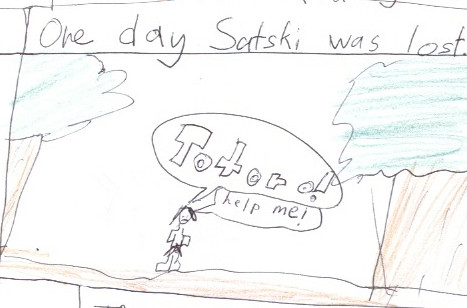 One day Satski was lost.
Totoro!
help me!